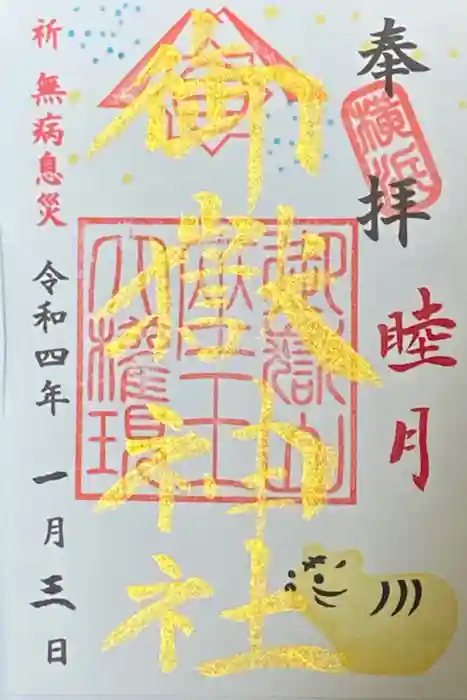 奉拝
横浜
睦月
御嶽神社
御嶽山
座王
大権現
祈 無病息災
令和四年 一月三日